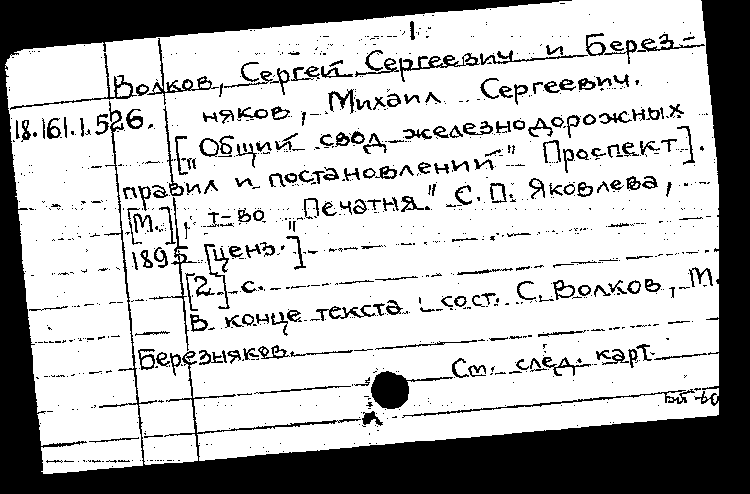 1
Волков, Сергей Сергеевич и Берез=
18.161.1.526. няков, Михаил Сергеевич.
[„Общий свод железнодорожных
правил и постановлений" Проспект].
[М.], т-во „Печатня" С. П. Яковлева,
1895 [ценз.]
[2] с.
В конце текста: сост. С. Волков, М.
Березняков.
См. след. карт.